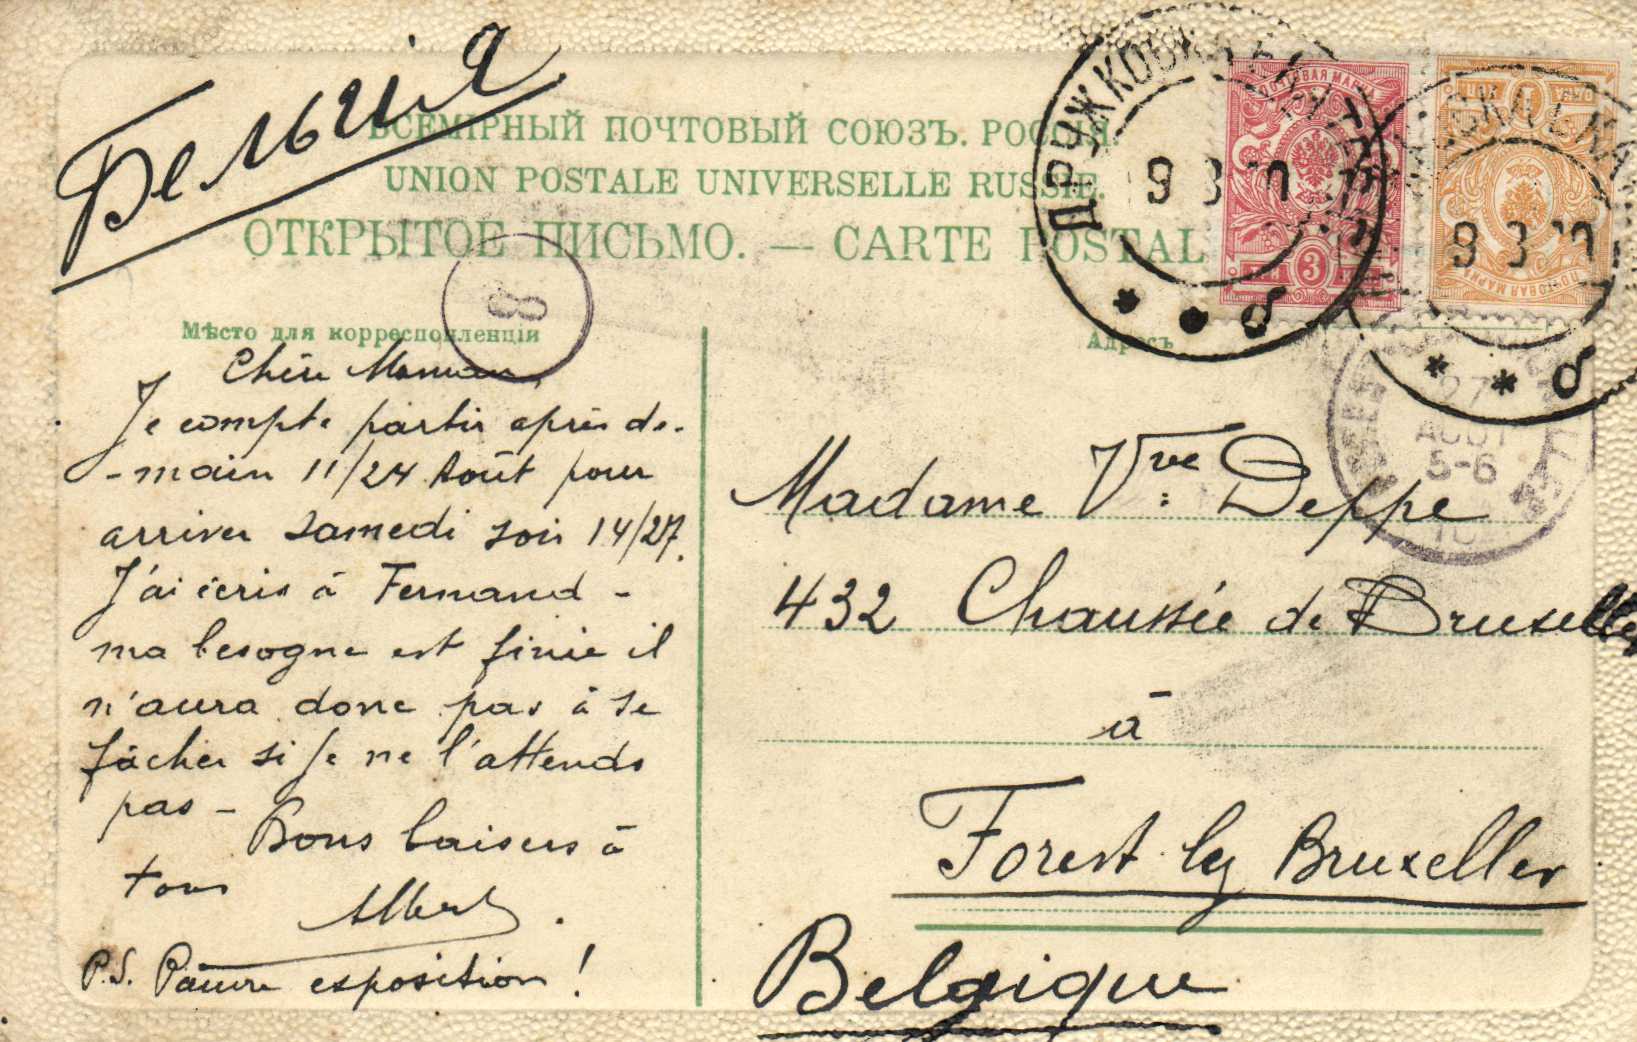 Бельгія
ВСЕМІРНЫЙ ПОЧТОВЫЙ СОЮЗЪ. РОССІЯ.
UNION POSTALE UNIVERSELLE RUSSIE.
ОТКРЫТОЕ ПИСЬМО. — CARTE POSTALE
Мѣсто для корреспонденціи
Адресъ
8
Chère Maman,
Je compte partir après de-
-main 11/24 Août pour
arriver samedi soir 14/27.
J'ai écris à Fernand -
ma besogne est finie il
n'aura donc pas à se
fâcher si je ne l'attends
pas -
Bons baisers à
tous
Albert.
P.S. Pauvre exposition !
Madame Vve: Deppe
432 Chaussée de Bruxelles
à
Forest lez Bruxelles
Belgique
ПОЧТОВАЯ МАРКА
ТРИ 3 КОП
1
ПОЧТОВАЯ МАРКА
ДРУЖКОВКА
9 8 10
б
9 8 10
б
27
AOUT
5-6
10